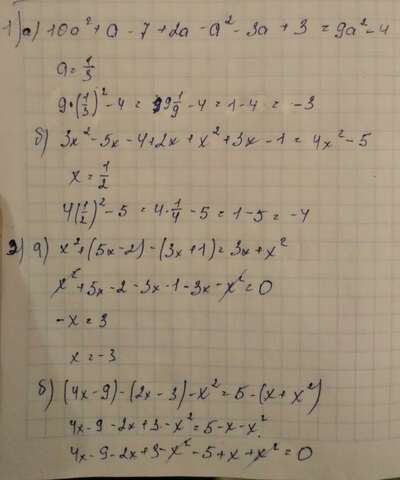 1) а) 10a² + a - 7 + 2a - a² - 3a + 3 = 9a² - 4
a = 1/3
9·(1/3)² - 4 = 9 1/9 - 4 = 1 - 4 = -3
б) 3x² - 5x - 4 + 2x + x² + 3x - 1 = 4x² - 5
x = 1/2
4(1/2)² - 5 = 4·1/4 - 5 = 1 - 5 = -4
2) а) x² + (5x - 2) - (3x + 1) = 3x + x²
x² + 5x - 2 - 3x - 1 - 3x - x² = 0
-x = 3
x = -3
б) (4x - 9) - (2x - 3) - x² = 5 - (x + x²)
4x - 9 - 2x + 3 - x² = 5 - x - x²
4x - 9 - 2x + 3 - x² - 5 + x + x² = 0